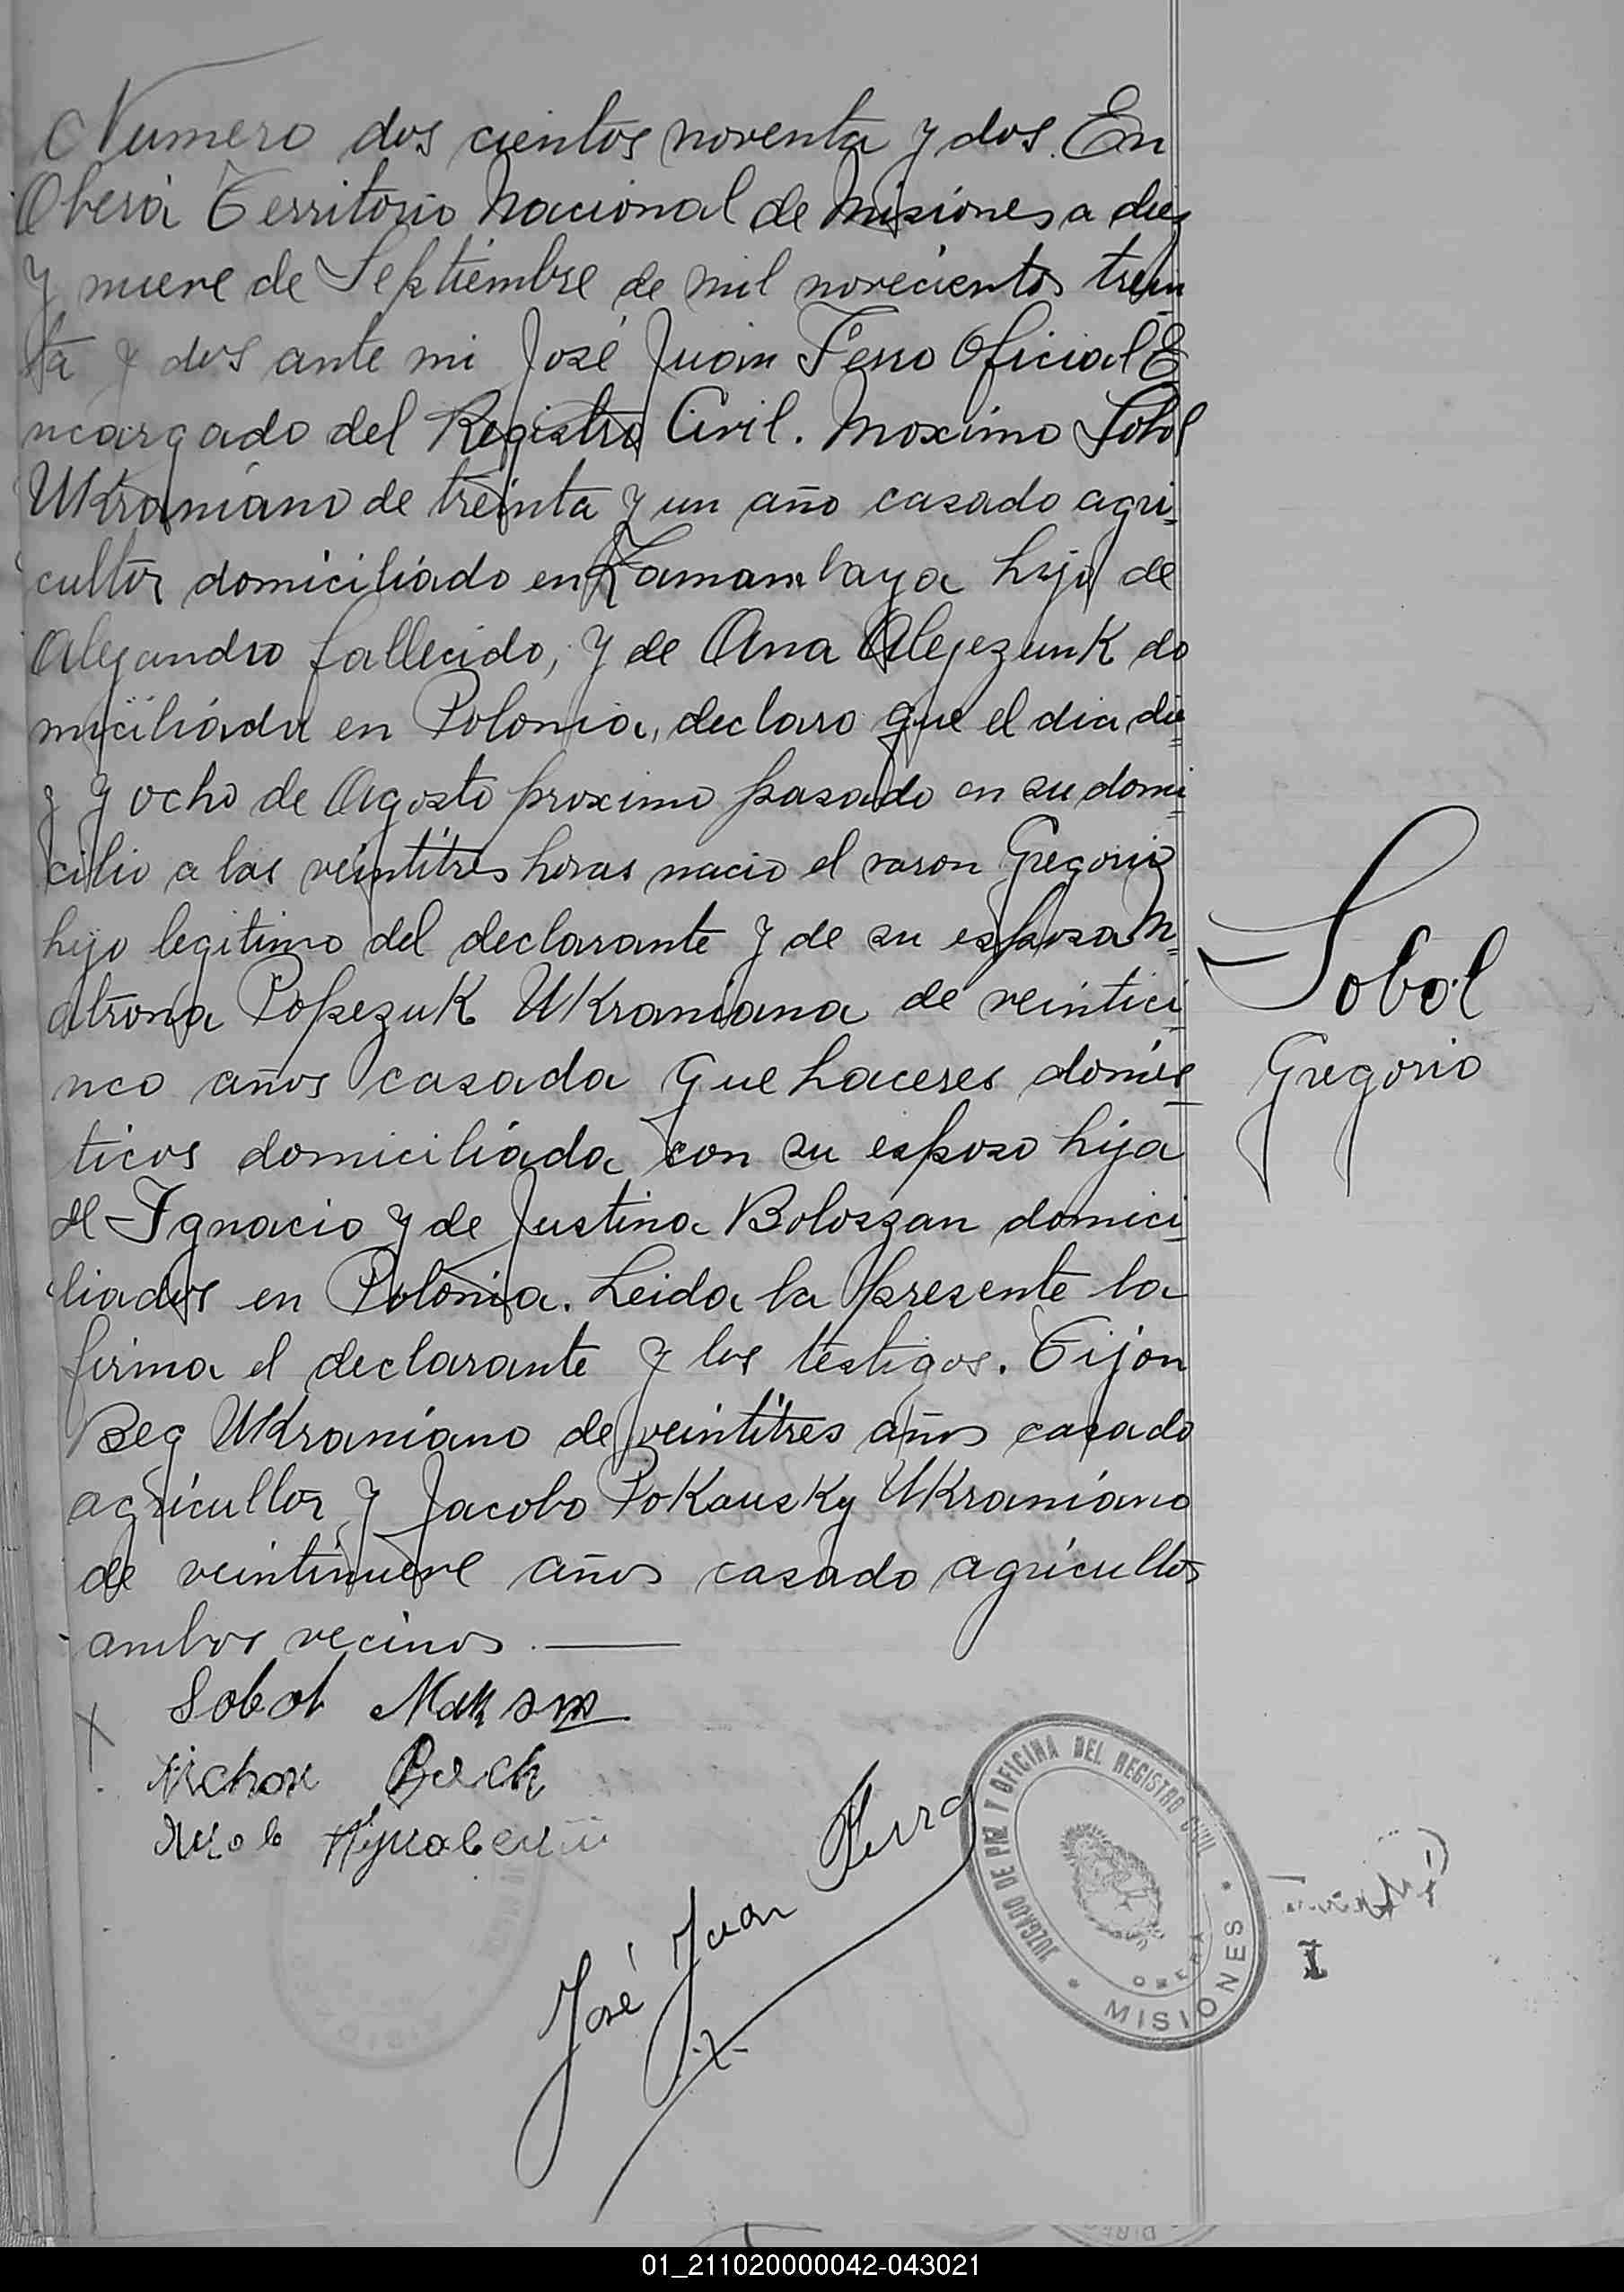 Numero dos cientos noventa y dos. En
Oberá Territorio Nacional de Misiones a diez
y nueve de Septiembre de mil novecientos trein
ta y dos ante mi José Juan Ferro Oficial E
ncargado del Registro Civil. Maximo Sobol
Ukraniano de treinta y un año casado agri
cultor domiciliado en Yamambaya hijo de
Alejandro fallecido, y de Ana Alejezunk do
miciliada en Polonia, declaro que el dia die
z y ocho de Agosto proximo pasado en su domi
cilio a las veintitres horas nacio el varon Gregorio
hijo legitimo del declarante y de su esposa M
atrona Popezuk Ukraniana de veintici
nco años casada que haceres domés
ticos domiciliada con su esposo hija
de Ignacio y de Justina Boloszan domici
liados en Polonia. Leida la presente la
firma el declarante y los testigos. Tijon
Beg Ukraniano de veintitres años casado
agricultor y Jacobo Pokausky Ukraniano
de veintinueve años casado agricultor
ambos vecinos.
Sobol
Sobol
Gregorio
José Juan Ferro
JUZGADO DE PAZ Y OFICINA DEL REGISTRO CIVIL
OBERA
MISIONES
I
01_211020000042-043021